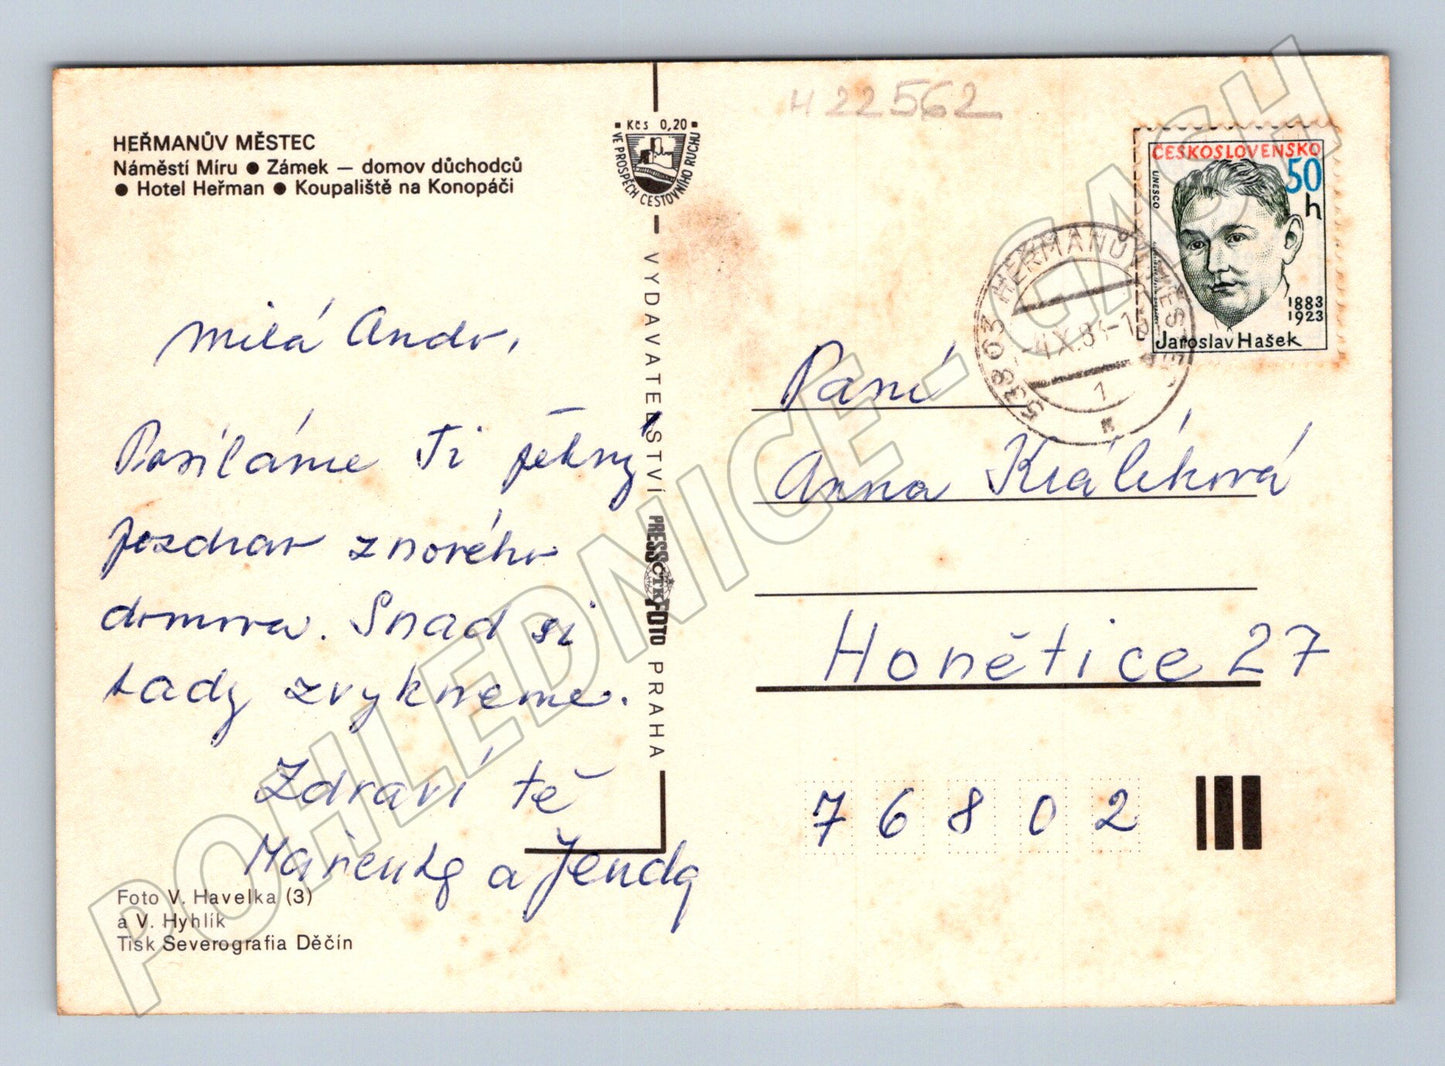 HEŘMANŮV MĚSTEC
Náměstí Míru ● Zámek — domov důchodců
● Hotel Heřman ● Koupaliště na Konopáči
Milá Ando,
Posíláme Ti pěkný
pozdrav z nového
domova. Snad si
tady zvykneme.
Zdraví tě
Mařenka a Jenda
Foto V. Havelka (3)
a V. Hyhlík
Tisk Severografia Děčín
Kčs 0,20
VE PROSPĚCH CESTOVNÍHO RUCHU
VYDAVATELSTVÍ PRESSFOTO PRAHA
ČTK
H 22562
ČESKOSLOVENSKO
50
h
UNESCO
1883
1923
Jaroslav Hašek
538 03 HEŘMANŮV MĚSTEC
1
Paní
Anna Králíková
Honětice 27
76802
POHLEDNICE - GASH